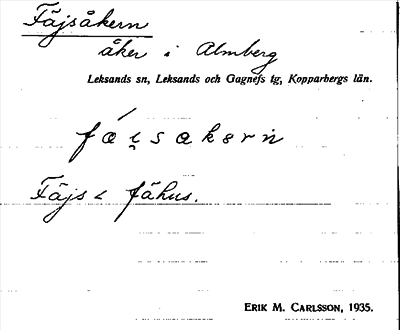 Fäjsåkern
åker i Almberg
Leksands sn, Leksands och Gagnefs tg, Kopparbergs län.
Fäjs < fähus.
ERIK M. CARLSSON, 1935.